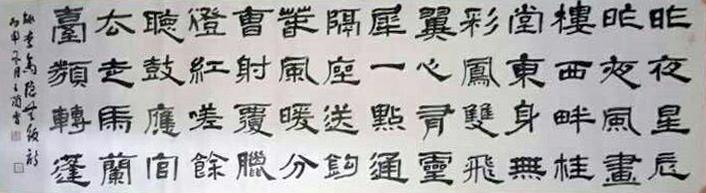 昨夜星辰
昨夜風畫
樓西畔桂
堂東身無
彩鳳雙飛
翼心有靈
犀一點通
隔座送鉤
春風暖分
曹射覆臘
燈紅嗟餘
聽鼓應官
去走馬蘭
臺類轉蓬
李商隱無題詩
丙申 月